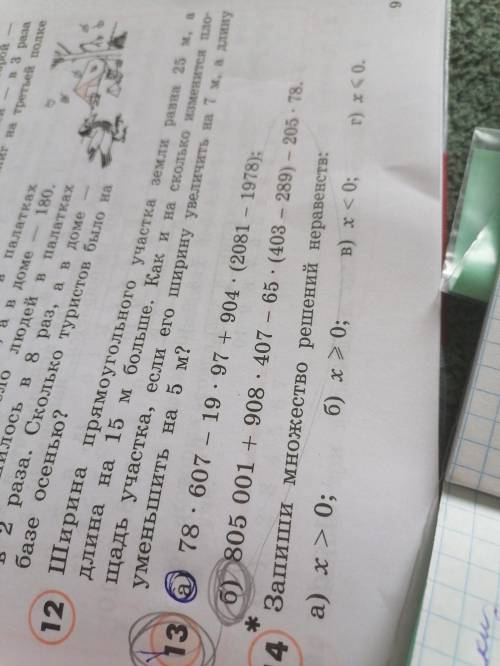 в 3 раза
на третьей полке
а в палатках
а в доме — 180.
людей в палатках
в 2 раза. Сколько в 8 раз, а в доме —
базе осенью? туристов было на
12 Ширина прямоугольного участка земли равна 25 м, а
длина на 15 м больше. Как и на сколько изменится пло-
щадь участка, если его ширину увеличить на 7 м, а длину
уменьшить на 5 м?
13 а) 78 · 607 − 19 · 97 + 904 · (2081 − 1978);
б) 805 001 + 908 · 407 − 65 · (403 − 289) − 205 · 78.
*
14 Запиши множество решений неравенств:
а) x > 0; б) x ⩾ 0; в) x < 0; г) x ⩽ 0.
9